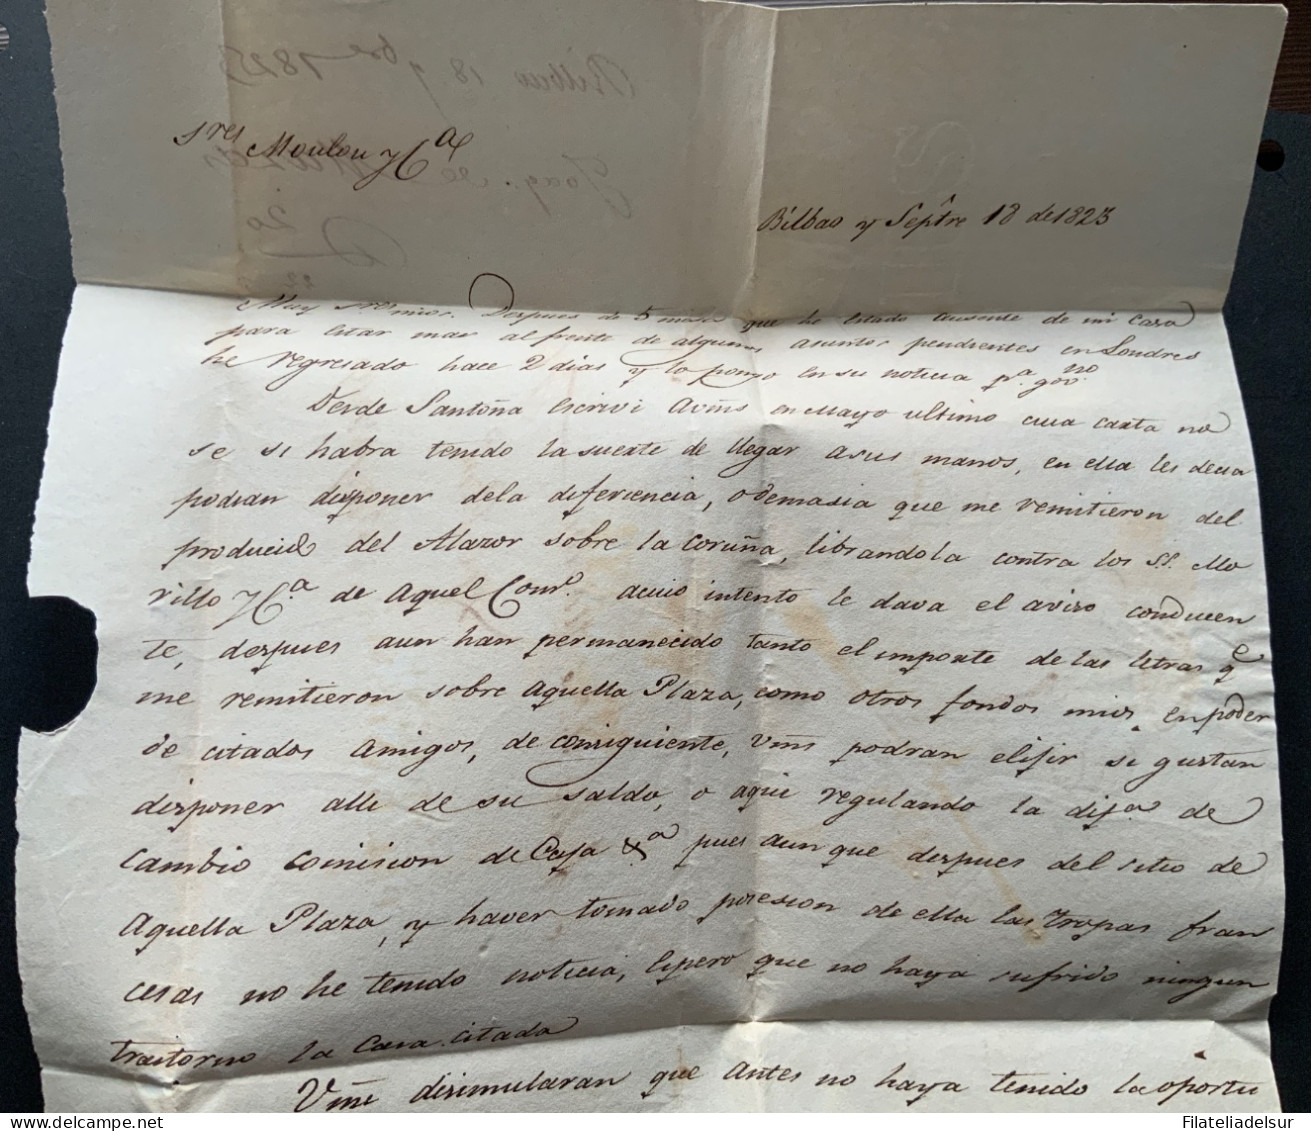 Sres Moulou y Ca
Bilbao y Septre 18 de 1823
Muy Sres mios. Despues de 5 meses que he estado ausente de mi Casa
para estar mas al frente de algunos asuntos pendientes en Londres
he regresado hace 2 dias y lo pongo en su noticia pa. govno.
Desde Santoña escrivi a vms en Mayo ultimo cuia carta no
se si habra tenido la suerte de llegar asus manos, en ella les decia
podian disponer dela diferiencia, o demasia que me remitieron del
producido del Alazor sobre la Coruña, librandola contra los SS. Mo
rillo y Ca. de Aquel Como. acuio intento le dava el aviso conducen
te, despues aun han permanecido tanto el importe de las letras qe
me remitieron sobre aquella Plaza, como otros fondos mios en poder
de citados amigos, de consiguiente, Vms podran elijir si gustan
disponer alli de su saldo, o aqui regulando la difa. de
cambio comision de Caja &a pues aun que despues del sitio de
aquella Plaza, y haver tomado posesion de ella las tropas fran
cesas no he tenido noticia, espero que no haya sufrido ningun
trastorno la Casa citada
Vms disimularan que antes no haya tenido la oportu
Bilbao 18 7bre 1823
Filateliadelsur.com